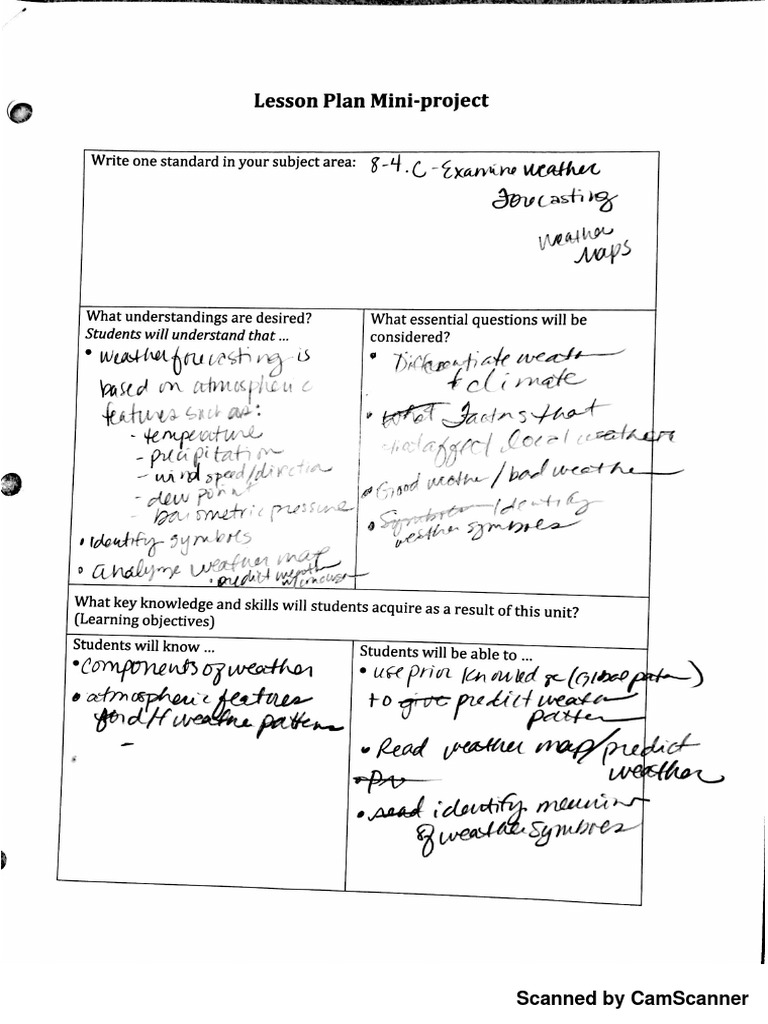 Lesson Plan Mini-project
Write one standard in your subject area: 8-4.C-Examine weather
Forecasting
weather
Maps
What understandings are desired?
Students will understand that ...
• weather forecasting is
based on atmospheric
features such as:
- temperature
- precipitation
- wind speed/direction
- dew point
- barometric pressure
• identify symbols
• analyze weather map
• predict weather
What essential questions will be
considered?
• Differentiate weather
+ climate
• What Factors that
affect local weather
• Good weather/bad weather
• Symbols Identify
weather symbols
What key knowledge and skills will students acquire as a result of this unit?
(Learning objectives)
Students will know ...
• components of weather
• atmospheric features
for d/t weather patterns
Students will be able to ...
• use prior knowledge (Global pattern)
to give predict weather
pattern
• Read weather map/predict
weather
• Pr
• read identify meaning
of weather symbols
Scanned by CamScanner